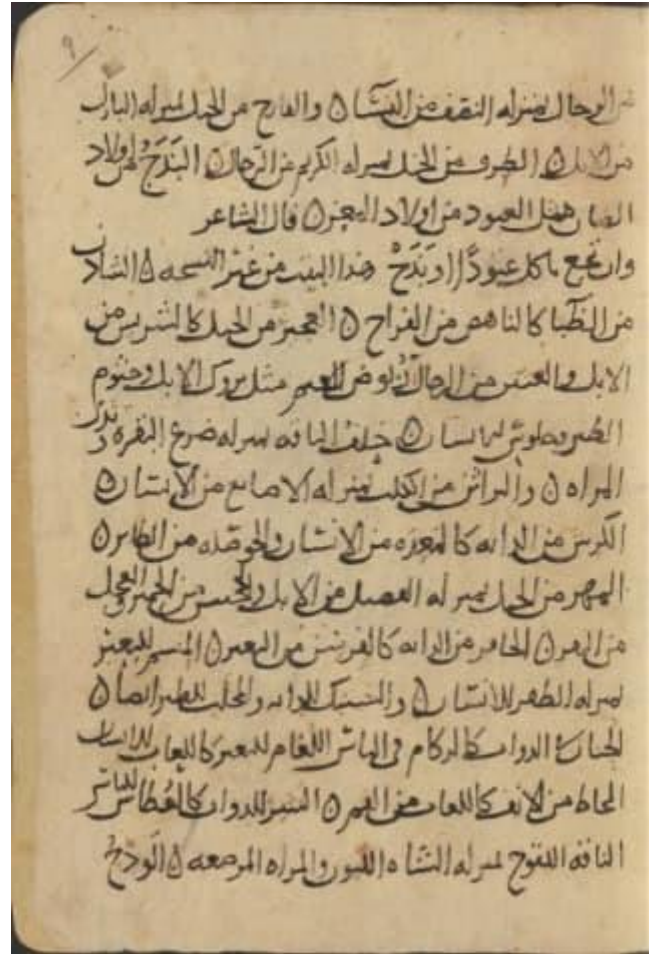 ٩
من الرجال بمنزلة النصف من النسا ۵ والقارح من الخيل بمنزله البازل
من الابل ۵ الطرف من الخيل بمنزله الكريم من الرجال ۵ البذج من اولاد
الضان مثل العتود من اولاد المعز ۵ قال الشاعر
وان تجع تاكل عتودًا او بذج هذا البيت من غير النسخه ۵ الشادن
من الظبا كالناهض من الفراخ ۵ العجير من الخيل كالسريس من
الابل والعنين من الرجال ربوض الغنم مثل بروك الابل وجثوم
الطير وجلوس الانسان ۵ خلف الناقه بمنزله ضرع البقره وثدي
المراه ۵ والبراثن من الكلب بمنزله الاصابع من الانسان ۵
الكرش من الدابه كالمعده من الانسان والحوصله من الطاير ۵
المهر من الخيل بمنزله الفصيل من الابل والجحش من الحمير والعجل
من البقر ۵ الحافر من الدابه كالفرسن من البعير ۵ المنسم للبعير
بمنزله الظفر للانسان ۵ والسنبك للدابه والمخلب للطير ايضا ۵
الخنان في الدواب كالزكام في الناس اللغام للبعير كاللعاب للانسان
المخاط من الانف كاللعاب من الفم ۵ النثير للدواب كالعطاس للناس
الناقه اللقوح بمنزله الشاه اللبون والمراه المرضعه ۵ الودج